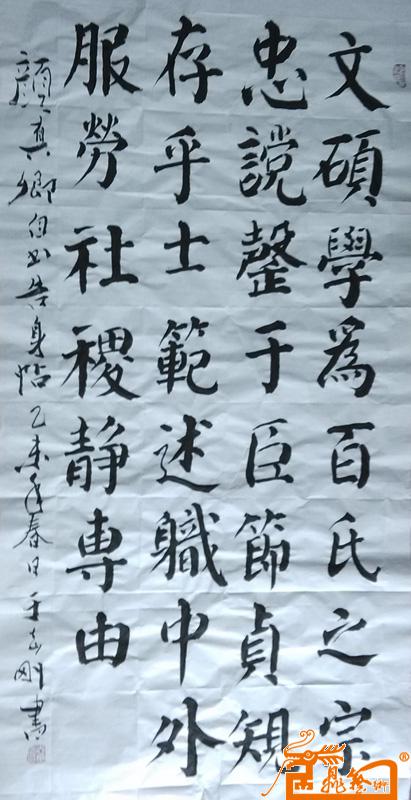 文碩學為百氏之宗
忠讜罄于臣節貞規
存乎士範述職中外
服勞社稷靜專由
顏真卿自书告身帖乙未年春日刚書